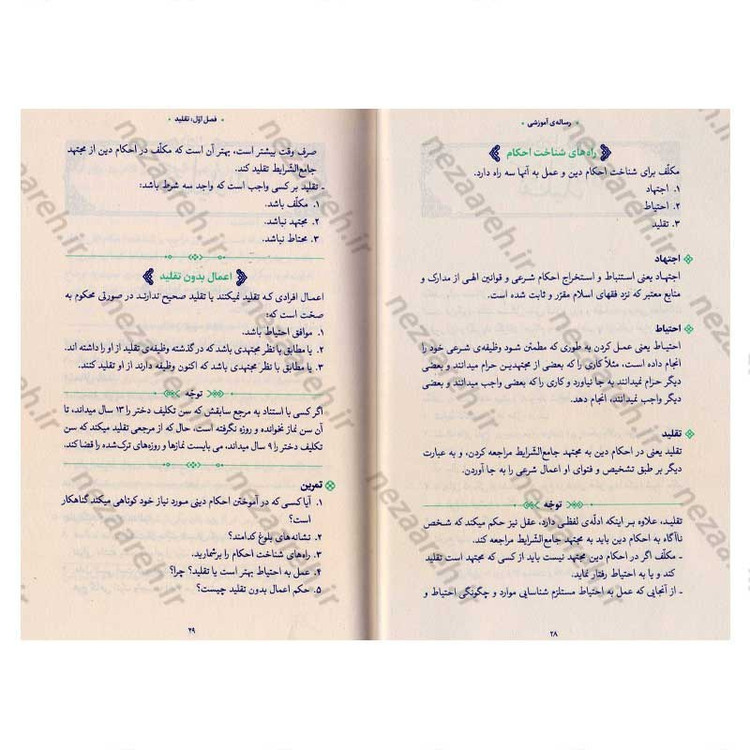 رساله‌ی آموزشی
راه‌های شناخت احکام
مکلّف برای شناخت احکام دین و عمل به آنها سه راه دارد.
۱. اجتهاد
۲. احتیاط
۳. تقلید
اجتهاد
اجتهـاد یعنی اسـتنباط و استخراج احکام شرعی و قوانین الهـی از مدارک و
منابع معتبر که نزد فقهای اسلام مقرّر و ثابت شده است.
احتیاط
احتیـاط یعنی عمـل کردن به طوری که مطمئن شـود وظیفه‌ی شـرعی خود را
انجام داده است، مثلاً کاری که بعضی از مجتهدیـن حرام میدانند و بعضی
دیگر حرام نمیدانند به جا نیاورد و کاری را که بعضی واجب میدانند و بعضی
دیگر واجب نمیدانند، انجام دهد.
تقلید
تقلید یعنی در احکام دین به مجتهد جامع‌الشّرایط مراجعه کردن، و به عبارت
دیگر بر طبق تشخیص و فتوای او اعمال شرعی را به جا آوردن.
توجّه
تقلیـد، علاوه بـر اینکه ادلّه‌ی لفظی دارد، عقل نیز حکم میکند که شخص
ناآگاه به احکام دین باید به مجتهد جامع‌الشّرایط مراجعه کند.
ـ مکلّف اگر در احکام دین مجتهد نیست باید از کسی که مجتهد است تقلید
کند و یا به احتیاط رفتار نماید.
ـ از آنجایی که عمل به احتیاط مستلزم شناسایی موارد و چگونگی احتیاط و
۲۸
فصل اوّل: تقلید
صرف وقت بیشتر است، بهتر آن است که مکلّف در احکام دین از مجتهد
جامع‌الشّرایط تقلید کند.
ـ تقلید بر کسی واجب است که واجد سه شرط باشد:
۱. مکلّف باشد.
۲. مجتهد نباشد.
۳. محتاط نباشد.
اعمال بدون تقلید
اعمـال افرادی کـه تقلید نمیکنند یا تقلید صحیح ندارنـد در صورتی محکوم به
صحّت است که:
۱. موافق احتیاط باشد.
۲. یا مطابق با نظر مجتهدی باشد که در گذشته وظیفه‌ی تقلید از او را داشته اند.
۳. یا مطابق با نظر مجتهدی باشد که اکنون وظیفه دارند از او تقلید کنند.
توجّه
اگر کسی با استناد به مرجع سابقش که سن تکلیف دختر را ۱۳ سال میداند، تا
آن سن نماز نخوانده و روزه نگرفته است، حال که از مرجعی تقلید میکند که سن
تکلیف دختر را ۹ سال میداند، می بایست نمازها و روزه‌های ترک‌شده را قضا کند.
تمرین
۱. آیا کسی که در آموختن احکام دینی مـورد نیاز خود کوتاهی میکند گناهکار
است؟
۲. نشانه‌های بلوغ کدامند؟
۳. راه‌های شناخت احکام را برشمارید.
۴. عمل به احتیاط بهتر است یا تقلید؟ چرا؟
۵. حکم اعمال بدون تقلید چیست؟
۲۹
nezaareh.ir